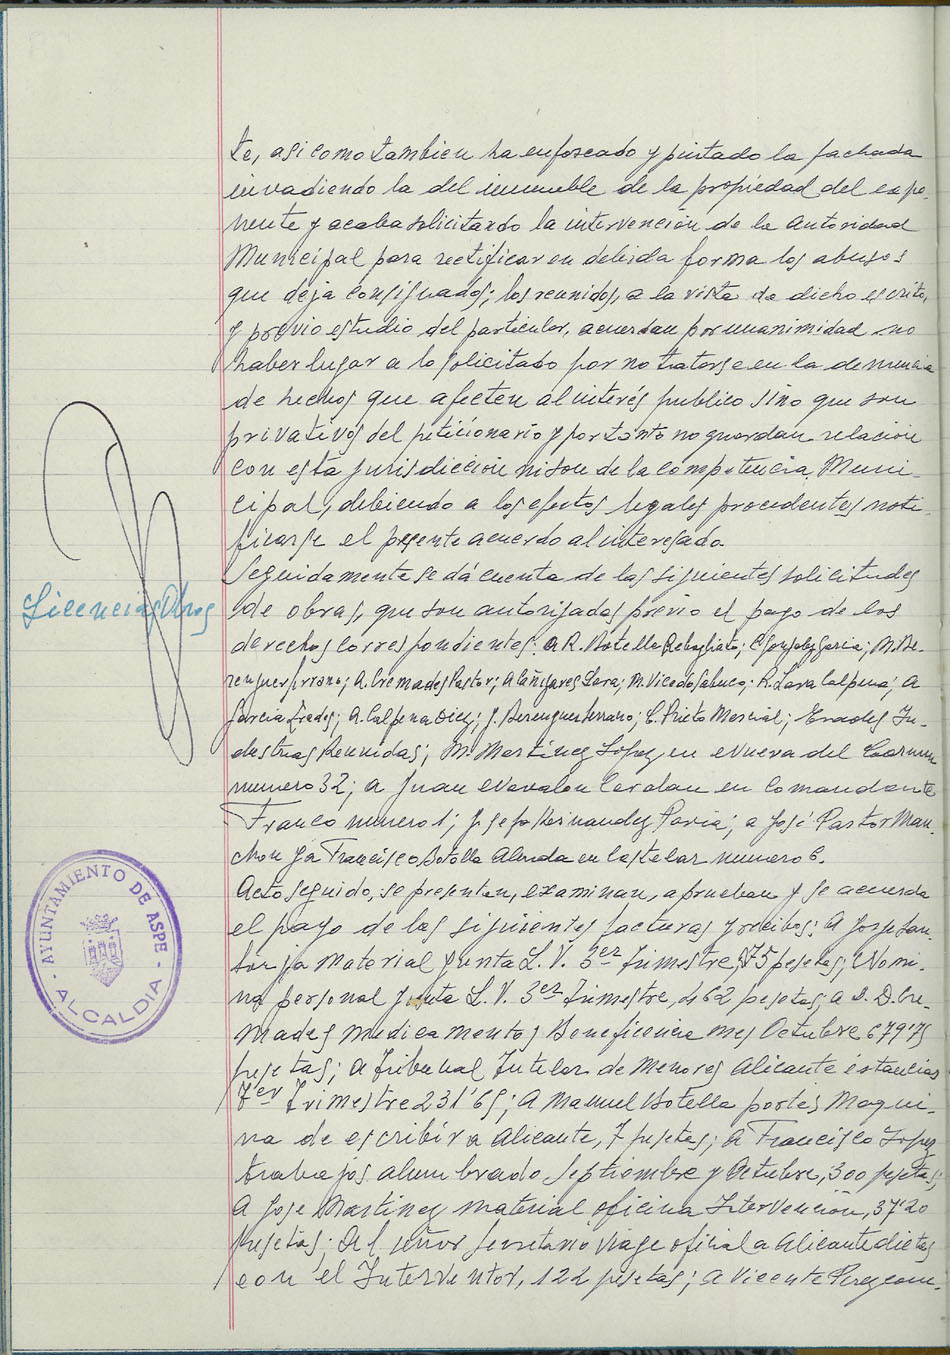 te, asi como tambien ha enfoscado y pintado la fachada
invadiendo la del inmueble de la propiedad del expo-
nente y acaba solicitando la intervención de la Autoridad
Municipal para rectificar en debida forma los abusos
que deja consignados; los reunidos, a la vista de dicho escrito,
y previo estudio del particular, acuerdan por unanimidad no
haber lugar a lo solicitado por no tratarse en la denuncia
de hechos que afecten al interés publico sino que son
privativos del peticionario y por tanto no guardan relación
con esta jurisdicción ni son de la competencia Muni-
cipal, debiendo a los efectos legales procedentes noti-
ficarse el presente acuerdo al interesado.
Seguidamente se dá cuenta de las siguientes solicitudes
Licencias Obras
de obras, que son autorizadas previo el pago de los
derechos correspondientes: a R. Botella Rebagliato; C. Gonzalez Garcia; M. Be-
renguer Serrano; A. Cremades Pastor; A. Cañizares Lara; M. Vicedo Sabuco; R. Lara Calpena; A
Garcia Erades; A. Calpena Diez; J. Berenguer Serrano; C. Prieto Marcial; Erades In-
dustrias Reunidas; M. Martinez López, en Nueva del Carmen
numero 32; a Juan Navalon Cerdan en Comandante
Franco numero 1; Josefa Hernandez Pavia; a José Pastor Man-
chon y a Francisco Botella Almida en Castelar numero 6.
Acto seguido, se presentan, examinan, aprueban y se acuerda
el pago de las siguientes facturas y recibos: A Jorge San-
tonja Material Junta L. V. 3er Trimestre, 75 pesetas; Nomi-
na personal Junta L. V. 3er Trimestre, 462 pesetas; a D. D. Cre-
mades medicamentos Beneficencia mes Octubre 679'75
pesetas; a Tribunal Tutelar de Menores Alicante estancias
Trimestre 231'65; A Manuel Botella portes Maqui-
na de escribir a Alicante, 7 pesetas; a Francisco Lopez
trabajos alumbrado Septiembre y Octubre, 300 pesetas;
a Jose Martinez material oficina Intervención, 37'20
pesetas; al señor Secretario viaje oficial a Alicante dietas
con el Interventor, 122 pesetas; a Vicente Perez
AYUNTAMIENTO DE ASPE
ALCALDIA